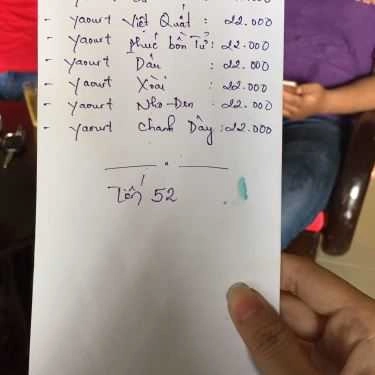 - Yaourt Việt Quất : 22.000
- Yaourt Phúc bồn Tử : 22.000
- Yaourt Dâu : 22.000
- Yaourt Xoài : 22.000
- Yaourt Nho-Đen : 22.000
- Yaourt Chanh Dây : 22.000
52